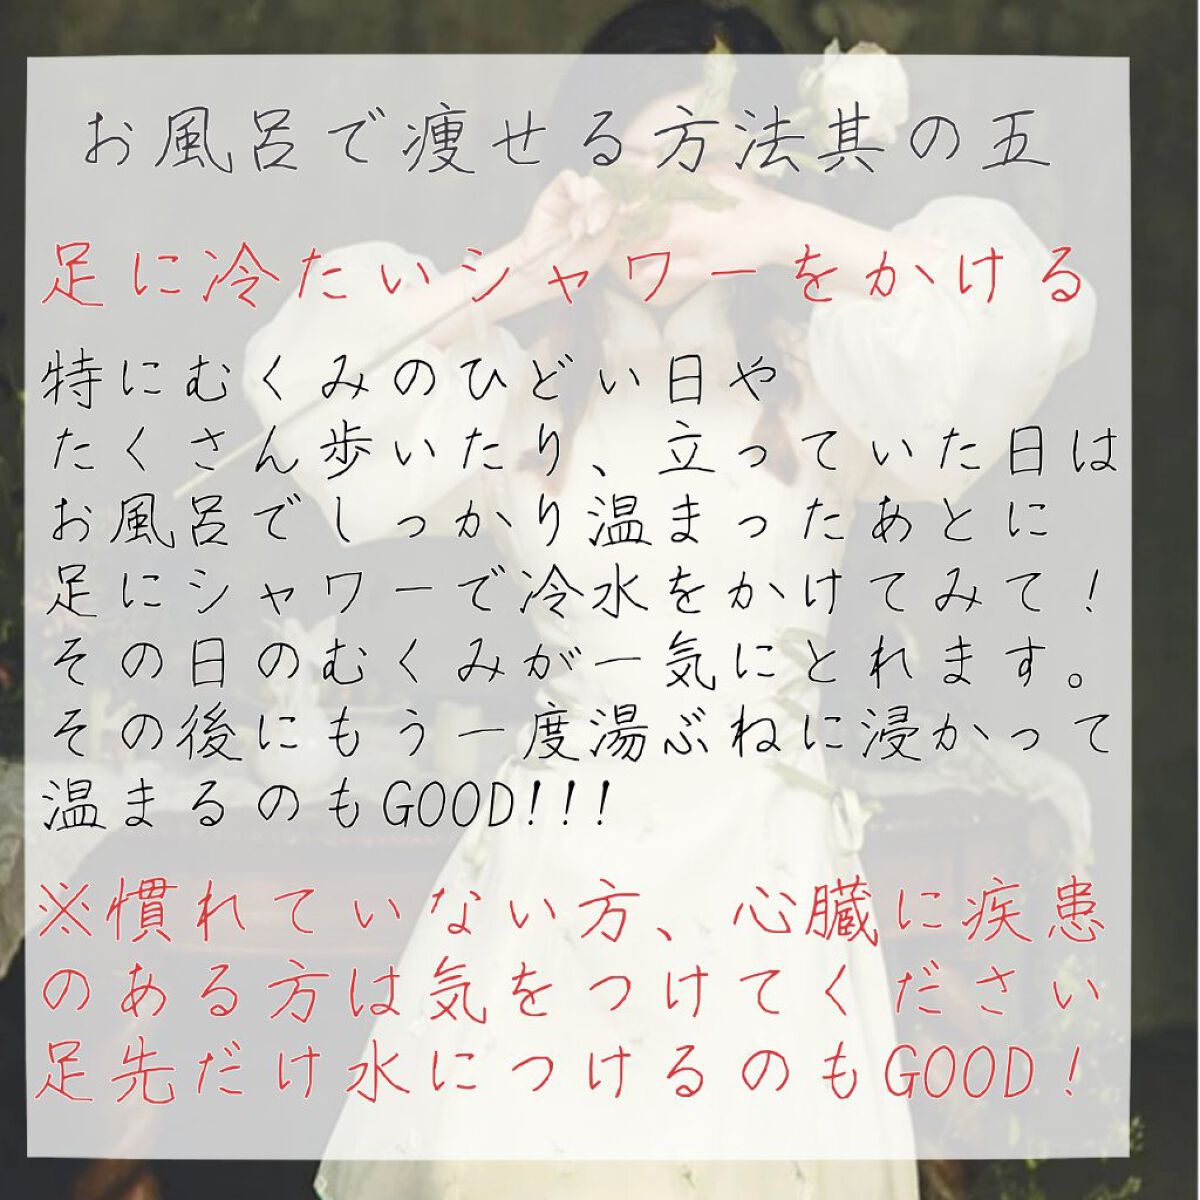 お風呂で痩せる方法其の五
足に冷たいシャワーをかける
特にむくみのひどい日や
たくさん歩いたり、立っていた日は
お風呂でしっかり温まったあとに
足にシャワーで冷水をかけてみて！
その日のむくみが一気にとれます。
その後にもう一度湯ぶねに浸かって
温まるのもGOOD!!!
※慣れていない方、心臓に疾患
のある方は気をつけてください
足先だけ水につけるのもGOOD！